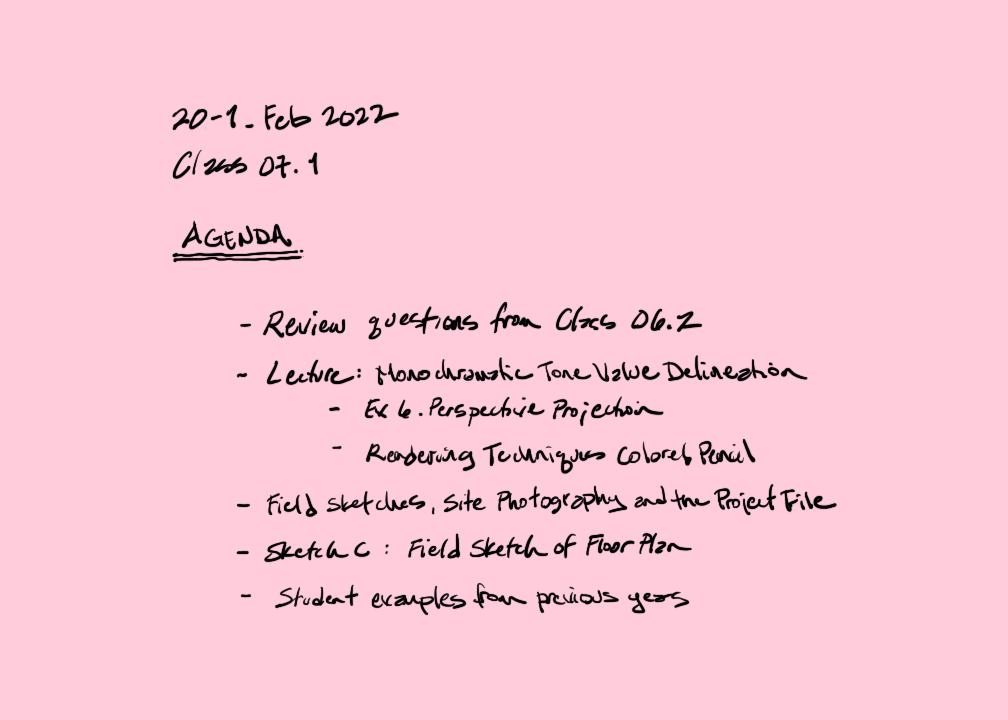 20-1_Feb 2022
Class 07.1
AGENDA
- Review questions from Class 06.2
- Lecture: Monochromatic Tone Value Delineation
- Ex 6. Perspective Projection
- Rendering Techniques Colored Pencil
- Field sketches, Site Photography and the Project File
- Sketch C: Field Sketch of Floor Plan
- Student examples from previous years